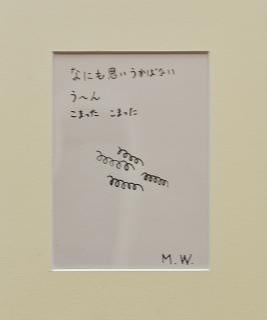 なにも思いうかばない
う〜ん
こまった こまった
M.W.